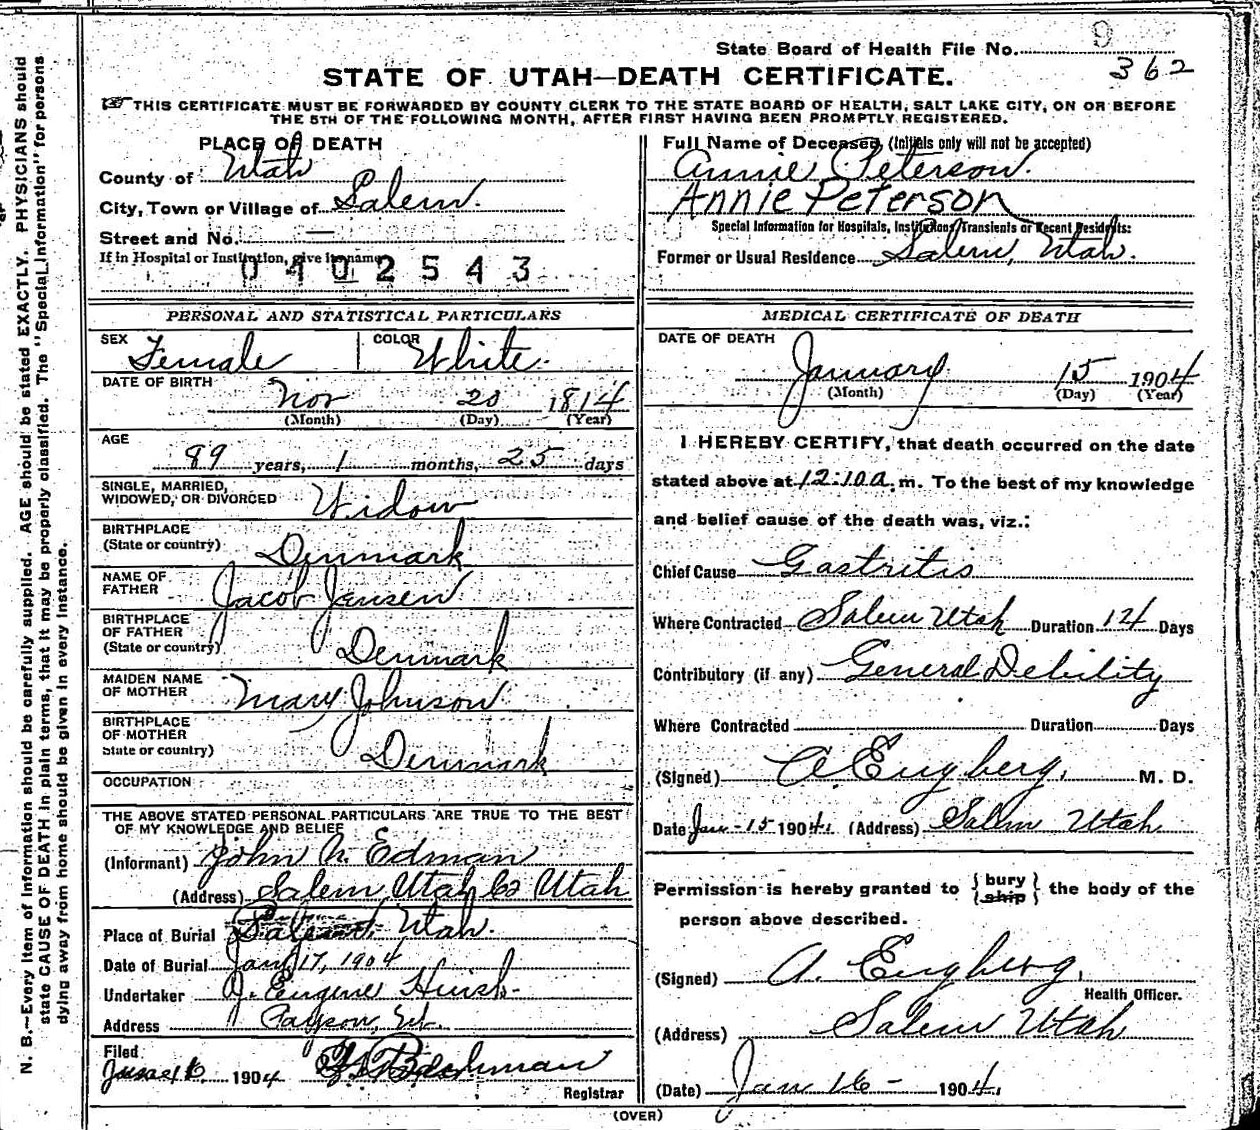 State Board of Health File No. 9
362
STATE OF UTAH—DEATH CERTIFICATE.
THIS CERTIFICATE MUST BE FORWARDED BY COUNTY CLERK TO THE STATE BOARD OF HEALTH, SALT LAKE CITY, ON OR BEFORE
THE 5TH OF THE FOLLOWING MONTH, AFTER FIRST HAVING BEEN PROMPTLY REGISTERED.
N. B.—Every item of information should be carefully supplied. AGE should be stated EXACTLY. PHYSICIANS should
state CAUSE OF DEATH in plain terms, that it may be properly classified. The "Special Information" for persons
dying away from home should be given in every instance.
PLACE OF DEATH
County of Utah
City, Town or Village of Salem.
Street and No. —
If in Hospital or Institution, give its name
0402543
Full Name of Deceased, (Initials only will not be accepted)
Annie Peterson.
Annie Peterson
Special Information for Hospitals, Institutions, Transients or Recent Residents:
Former or Usual Residence Salem, Utah.
PERSONAL AND STATISTICAL PARTICULARS
SEX Female COLOR White.
DATE OF BIRTH
Nov 20 1814
(Month) (Day) (Year)
AGE
89 years, 1 months, 25 days
SINGLE, MARRIED,
WIDOWED, OR DIVORCED Widow
BIRTHPLACE
(State or country) Denmark
NAME OF
FATHER Jacob Jensen
BIRTHPLACE
OF FATHER
(State or country) Denmark
MAIDEN NAME
OF MOTHER Mary Johnson
BIRTHPLACE
OF MOTHER
State or country) Denmark
OCCUPATION
THE ABOVE STATED PERSONAL PARTICULARS ARE TRUE TO THE BEST
OF MY KNOWLEDGE AND BELIEF
(Informant) John N. Edman
(Address) Salem Utah Co Utah
Place of Burial Utah.
Date of Burial Jany 17, 1904
Undertaker J. Eugene Huish.
Address Payson, Ut.
Filed
16 1904
Registrar
MEDICAL CERTIFICATE OF DEATH
DATE OF DEATH
January 15 1904
(Month) (Day) (Year)
I HEREBY CERTIFY, that death occurred on the date
stated above at 12:10 a.m. To the best of my knowledge
and belief cause of the death was, viz.:
Chief Cause Gastritis
Where Contracted Salem Utah Duration 14 Days
Contributory (if any) General Debility
Where Contracted Duration Days
(Signed) A Engberg. M. D.
Date Jan-15 1904. (Address) Salem Utah.
Permission is hereby granted to { bury ship } the body of the
person above described.
(Signed) A. Engberg.
Health Officer.
(Address) Salem Utah
(Date) Jan 16- 1904.
(OVER)